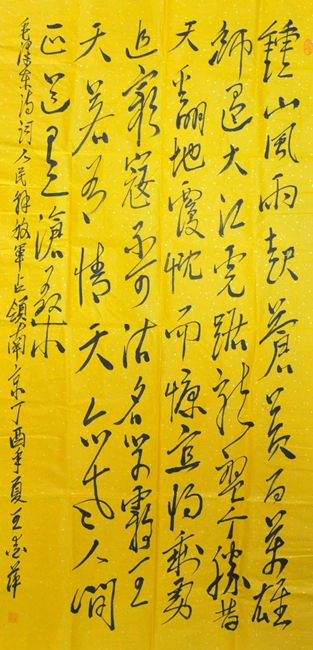 鐘山風雨起蒼黃百萬雄
師過大江虎踞龍盤今勝昔
天翻地覆慨而慷宜將剩勇
追窮寇不可沽名學霸王
天若有情天亦老人間
正道是滄桑
毛澤東詩詞人民解放軍占領南京丁酉年夏王